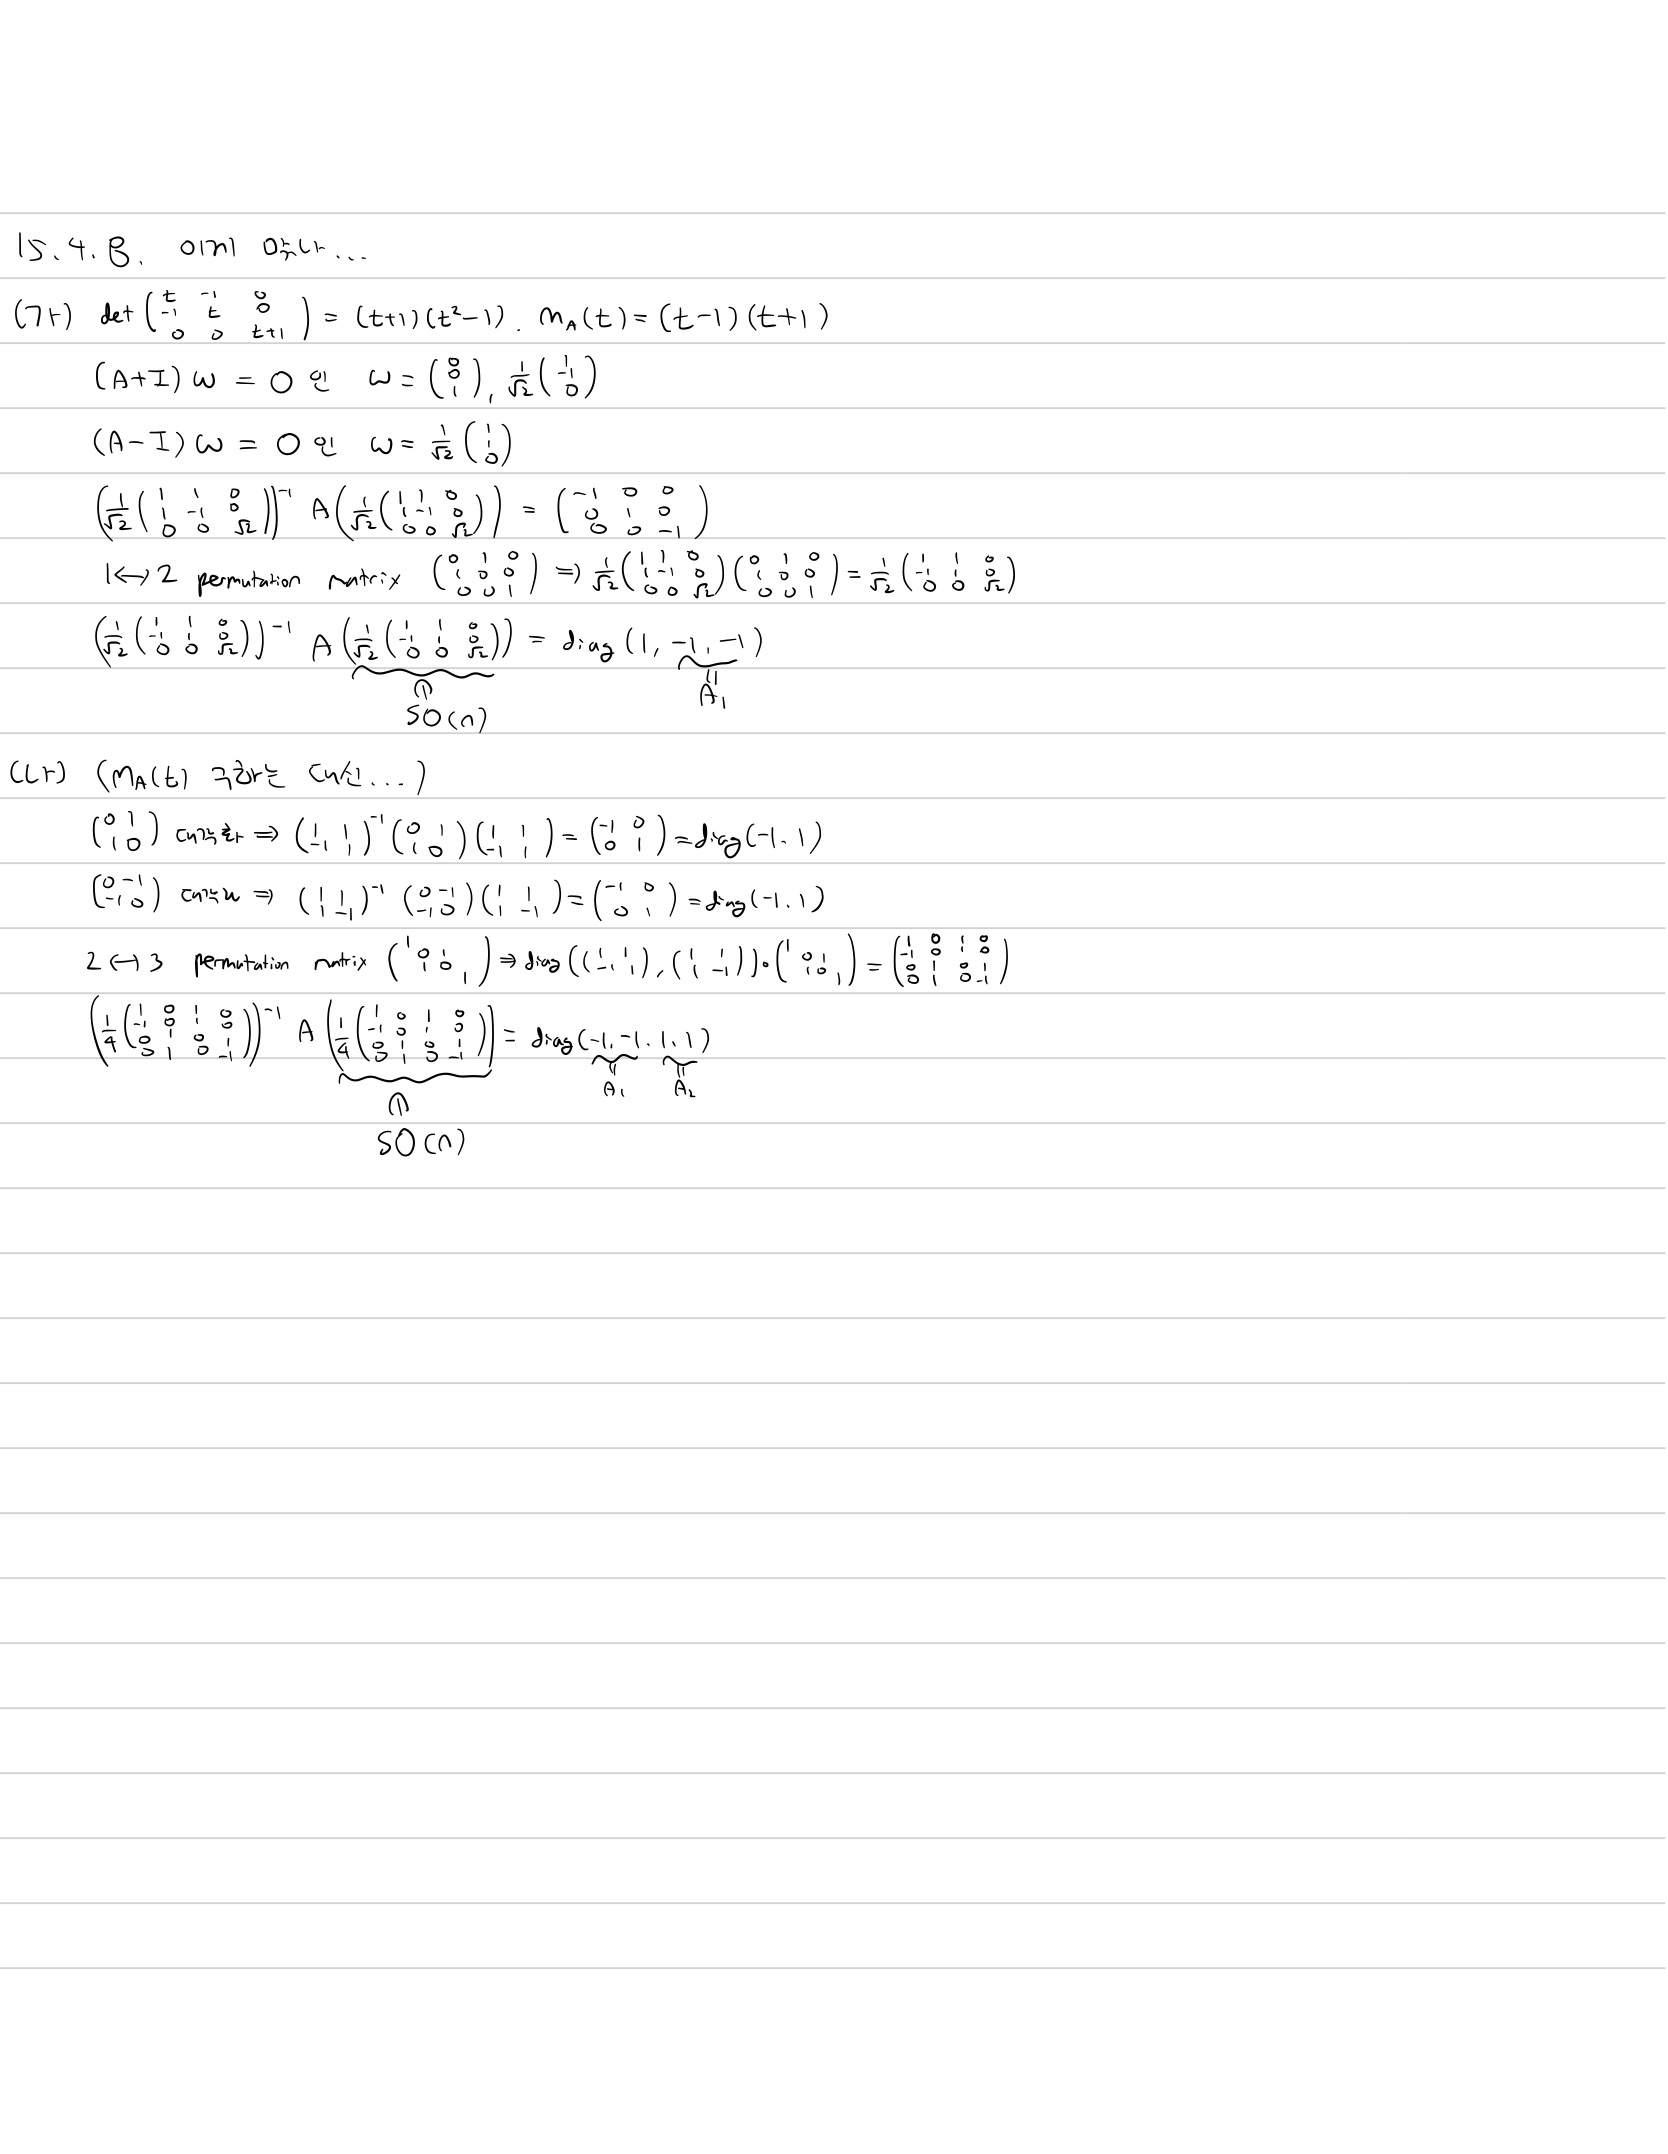 15.4.B. 이게 맞나...
(가) det (t -1 0 / -1 t 0 / 0 0 t+1) = (t+1)(t²-1). m_A(t) = (t-1)(t+1)
(A+I)ω = 0 인 ω = (0 / 0 / 1), 1/√2 (1 / -1 / 0)
(A-I)ω = 0 인 ω = 1/√2 (1 / 1 / 0)
(1/√2 (1 1 0 / 1 -1 0 / 0 0 √2))⁻¹ A (1/√2 (1 1 0 / 1 -1 0 / 0 0 √2)) = (-1 0 0 / 0 1 0 / 0 0 -1)
1↔2 permutation matrix (0 1 0 / 1 0 0 / 0 0 1) ⇒ 1/√2 (1 1 0 / 1 -1 0 / 0 0 √2)(0 1 0 / 1 0 0 / 0 0 1) = 1/√2 (1 1 0 / -1 1 0 / 0 0 √2)
(1/√2 (1 1 0 / -1 1 0 / 0 0 √2))⁻¹ A (1/√2 (1 1 0 / -1 1 0 / 0 0 √2)) = diag (1, -1, -1)
∈ SO(n)
= A₁
(나) (m_A(t) 구하는 대신...)
(0 1 / 1 0) 대각화 ⇒ (1 1 / -1 1)⁻¹ (0 1 / 1 0)(1 1 / -1 1) = (-1 0 / 0 1) = diag(-1, 1)
(0 -1 / -1 0) ⇒ (1 1 / 1 -1)⁻¹ (0 -1 / -1 0)(1 1 / 1 -1) = (-1 0 / 0 1) = diag(-1, 1)
2↔3 permutation matrix (1 / 0 1 / 1 0 / 1) ⇒ diag((1 1 / -1 1), (1 1 / 1 -1))·(1 / 0 1 / 1 0 / 1) = (1 0 1 0 / -1 0 1 0 / 0 1 0 1 / 0 1 0 -1)
(1/4 (1 0 1 0 / -1 0 1 0 / 0 1 0 1 / 0 1 0 -1))⁻¹ A (1/4 (1 0 1 0 / -1 0 1 0 / 0 1 0 1 / 0 1 0 -1)) = diag(-1, -1, 1, 1)
= A₁ = A₂
∈
SO(n)